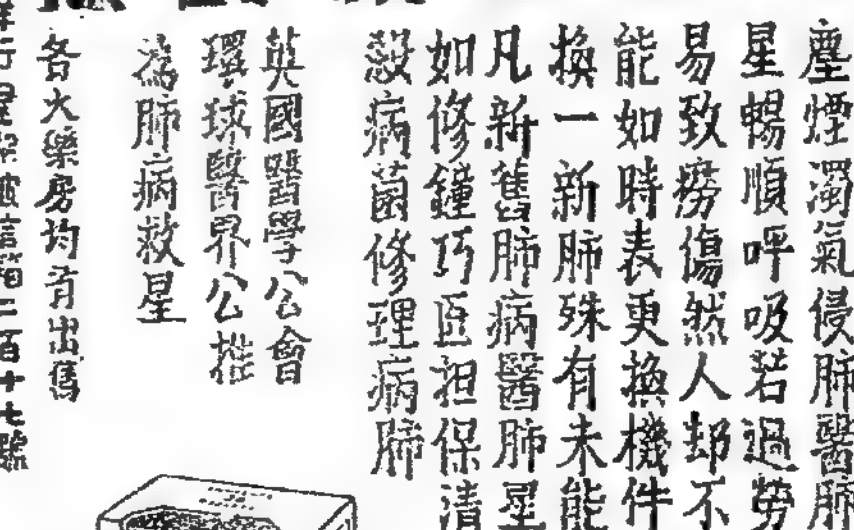 塵煙濁氣侵肺醫肺
星暢順呼吸若過勞
易致癆傷然人却不
能如時表更換機件
換一新肺殊有未能
凡新舊肺病醫肺星
如修鐘巧匠担保清
殺病菌修理病肺
英國醫學公會
環球醫界公推
為肺病救星
各大藥房均有出售
信箱二百十七號